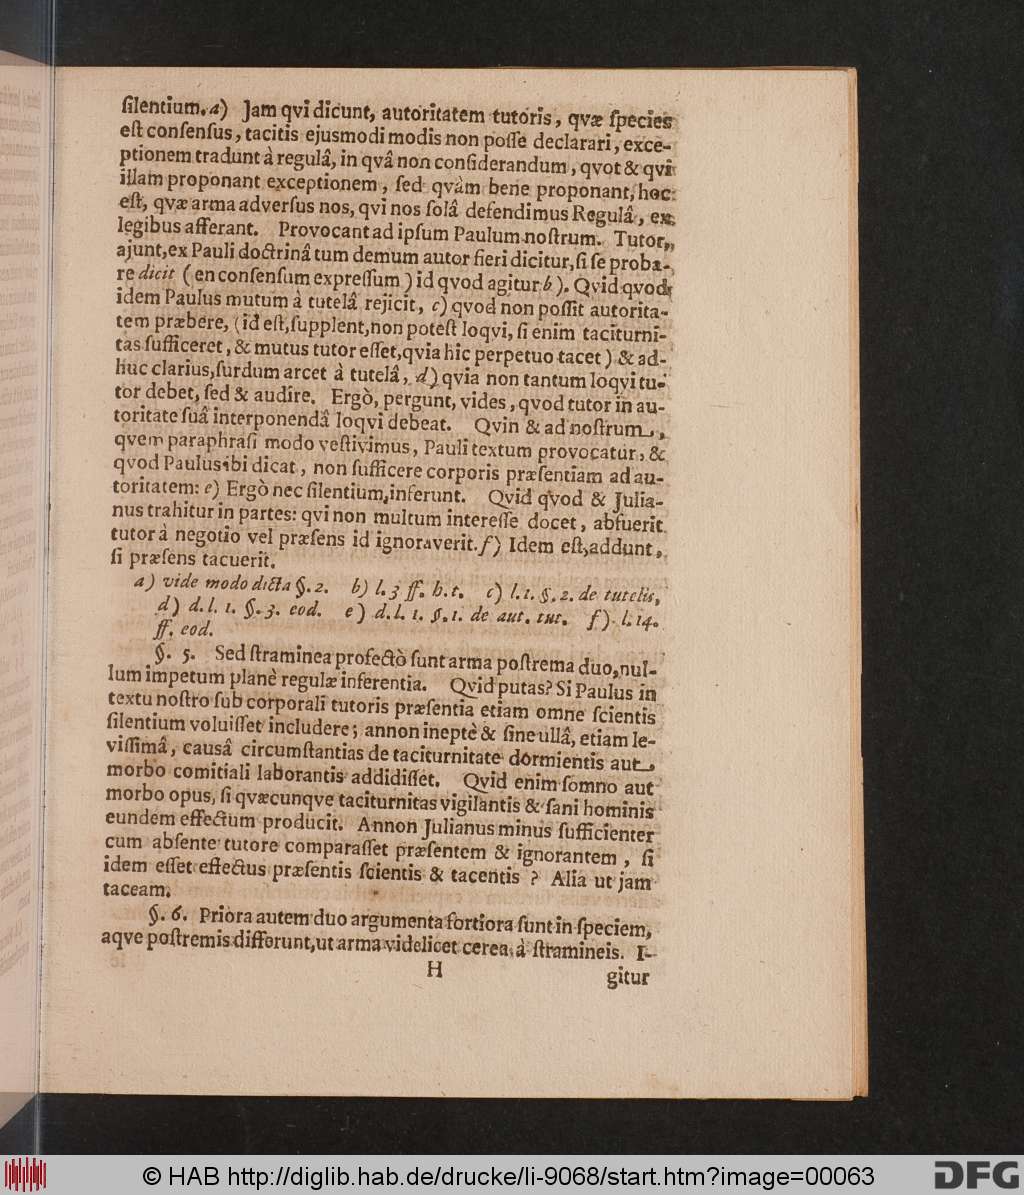 ſilentium. a) Jam qvi dicunt, autoritatem tutoris, qvæ ſpecies
eſt conſenſus, tacitis ejusmodi modis non poſſe declarari, exce-
ptionem tradunt à regulâ, in qvâ non conſiderandum, qvot & qvi
illam proponant exceptionem, ſed qvàm bene proponant, hoc
eſt, qvæ arma adverſus nos, qvi nos ſolâ defendimus Regulâ, ex
legibus afferant. Provocant ad ipſum Paulum noſtrum. Tutor,
ajunt, ex Pauli doctrinâ tum demum autor fieri dicitur, ſi ſe proba-
re dicit (en conſenſum expreſſum) id qvod agitur b). Qvid qvod
idem Paulus mutum à tutelâ rejicit, c) qvod non poſſit autorita-
tem præbere, (id eſt, ſupplent, non poteſt loqvi, ſi enim taciturni-
tas ſufficeret, & mutus tutor eſſet, qvia hic perpetuo tacet) & ad-
huc clarius, ſurdum arcet à tutelâ, d) qvia non tantum loqvi tu-
tor debet, ſed & audire. Ergò, pergunt, vides, qvod tutor in au-
toritate ſuâ interponendâ loqvi debeat. Qvin & ad noſtrum,
qvem paraphraſi modo veſtivimus, Pauli textum provocatur, &
qvod Paulus ibi dicat, non ſufficere corporis præſentiam ad au-
toritatem: e) Ergò nec ſilentium, inferunt. Qvid qvod & Julia-
nus trahitur in partes: qvi non multum intereſſe docet, abfuerit
tutor à negotio vel præſens id ignoraverit. f) Idem eſt, addunt,
ſi præſens tacuerit.
a) vide modo dicta §. 2. b) l. 3 ff. h. t. c) l. 1. §. 2. de tutelis,
d) d. l. 1. §. 3. eod. e) d. l. 1. §. 1. de aut. tut. f) l. 14.
ff. eod.
§. 5. Sed ſtraminea profectò ſunt arma poſtrema duo, nul-
lum impetum planè regulæ inferentia. Qvid putas? Si Paulus in
textu noſtro ſub corporali tutoris præſentia etiam omne ſcientis
ſilentium voluiſſet includere; annon ineptè & ſine ullâ, etiam le-
viſſimâ, causâ circumſtantias de taciturnitate dormientis aut
morbo comitiali laborantis addidiſſet. Qvid enim ſomno aut
morbo opus, ſi qvæcunqve taciturnitas vigilantis & ſani hominis
eundem effectum producit. Annon Julianus minus ſufficienter
cum abſente tutore comparaſſet præſentem & ignorantem, ſi
idem eſſet effectus præſentis ſcientis & tacentis? Alia ut jam
taceam.
§. 6. Priora autem duo argumenta fortiora ſunt in ſpeciem,
aqve poſtremis differunt, ut arma videlicet cerea à ſtramineis. I-
H
gitur
© HAB http://diglib.hab.de/drucke/li-9068/start.htm?image=00063
DFG